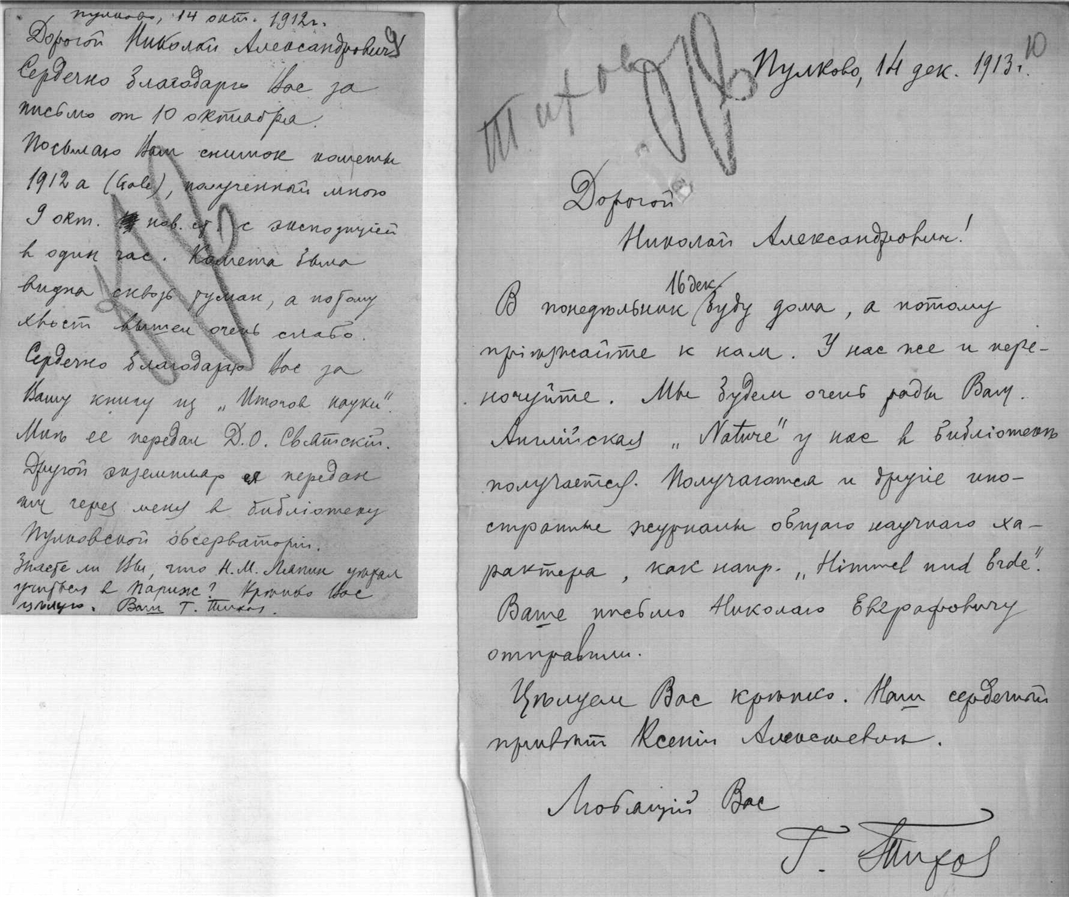 Пулково, 14 окт. 1912г.
Дорогой Николай Александрович!
Сердечно благодарю Вас за
письмо от 10 октября.
Посылаю Вам снимок кометы
1912 a (Gale), полученный мною
9 окт. нов. ст. с экспозицией
в один час. Комета была
видна сквозь туман, а потому
хвост вышел очень слабо.
Сердечно благодарю Вас за
Вашу книгу из „Итогов науки“.
Мнѣ ее передал Д.О. Святскій.
Другой экземпляр передан
через меня в библіотеку
Пулковской обсерваторіи.
Знаете ли Вы, что Н.М. Ляпин уѣхал
учиться в Париж? Крѣпко Вас
цѣлую. Ваш Г. Тихов.
Тихов
10
Пулково, 14 дек. 1913 г.
Дорогой
Николай Александрович!
16 дек.
В понедѣльник буду дома, а потому
пріѣзжайте к нам. У нас же и пере-
ночуйте. Мы будем очень рады Вам.
Англійская „Nature“ у нас в библіотекѣ
получается. Получаются и другіе ино-
странные журналы общаго научнаго ха-
рактера, как напр. „Himmel und Erde“.
Ваше письмо Николаю Евграфовичу
отправили.
Цѣлуем Вас крѣпко. Наш сердечный
привѣт Ксеніи Алексѣевнѣ.
Любящій Вас
Г. Тихов